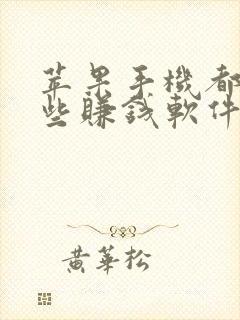 苹果手機都
些賺錢軟件
黄華松